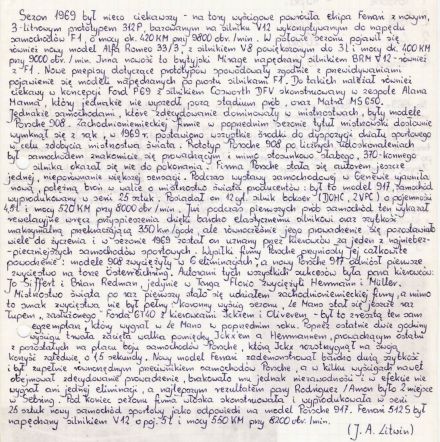 Sezon 1969 był nieco ciekawszy - na tory wyścigowe powróciła ekipa Ferrari z nowym,
3-litrowym prototypem 312P, bazującym na silniku V12 wykorzystywanym do napędu
samochodów F1, o mocy ok. 420 KM przy 9800 obr./min. W połowie sezonu pojawił się
również nowy model Alfa Romeo 33/3, z silnikiem V8 powiększonym do 3L i mocy ok. 400 KM
przy 9000 obr./min. Inna nowość to brytyjski Mirage napędzany silnikiem BRM V12 - również
z F1. Nowe przepisy dotyczące prototypów spowodowały zgodnie z przewidywaniami
pojawienie się modeli napędzanych po prostu silnikami F1. Do takich należał również
ciekawy w koncepcji Ford P69 z silnikiem Cosworth DFV skonstruowany w zespole Alana
Manna, który jednakże nie wyszedł poza stadium prób, oraz Matra MS 650.
Jednakże samochodami, które zdecydowanie dominowały w mistrzostwach, były modele
Porsche 908. Zachodnioniemieckiej firmie w poprzednim sezonie tytuł mistrzowski dosłownie
wymknął się z rąk, w 1969 r. postawiono wszystkie środki do dyspozycji działu sportowego
w celu zdobycia mistrzostwa świata. Prototyp Porsche 908 po licznych udoskonaleniach
był samochodem znakomicie się prowadzącym i mimo stosunkowo słabego, 370-konnego
silnika okazał się nie do pokonania. Firma Porsche stała się autorem jeszcze
jednej, nieporównanie większej sensacji. Podczas wystawy samochodowej w Genewie ujawniła
nową, potężną broń w walce o mistrzostwo świata producentów: był to model 917, samochód
wyprodukowany w serii 25 sztuk. Posiadał on 12 cyl. silnik bokser (DOHC, 2VPC) o pojemności
4,5L i mocy 520 KM przy 8000 obr./min. Już podczas pierwszych prób samochód ten wykazał
rewelacyjne wręcz przyspieszenia dzięki bardzo elastycznemu silnikowi oraz szybkość
maksymalną przekraczającą 350 km/godz., ale równocześnie jego prowadzenie się pozostawiało
wiele do życzenia i w sezonie 1969 został on uznany przez kierowców za jeden z najniebez-
pieczniejszych samochodów sportowych. Wysiłki firmy Porsche przyniosły jej całkowite
powodzenie: modele 908 zwyciężyły w 6 eliminacjach, a nowy Porsche 917 odniósł pierwsze
zwycięstwo na torze Österreichring. Autorami tych wszystkich sukcesów była para kierowców:
Jo Siffert i Brian Redman, jedynie w Targa Florio zwyciężyli Herrmann i Müller.
Mistrzostwo świata po raz pierwszy stało się udziałem zachodnioniemieckiej firmy, a mimo
to smak zwycięstwa nie był pełny. Klasyczny wyścig sezonu, Le Mans stał się jeszcze raz
łupem "zasłużonego" Forda GT40 z kierowcami Ickxem i Oliverem, był to zresztą ten sam
egzemplarz, który wygrał w Le Mans w poprzednim roku. Poprzez ostatnie dwie godziny
wyścigu trwała zacięta walka pomiędzy Ickxem a Herrmannem, prowadzącym ostatni
z pozostałych na placu boju samochodów Porsche, którą Ickx rozstrzygnął na swoją
korzyść zaledwie o 1,5 sekundy. Nowy model Ferrari zademonstrował bardzo dużą szybkość
i był zupełnie równorzędnym przeciwnikiem samochodów Porsche, a w kilku wyścigach nawet
obejmował zdecydowane prowadzenie, brakowało mu jednak niezawodności i w efekcie nie
wygrał ani jednej eliminacji, a najlepszym rezultatem pary Rodriguez/Amon było 2 miejsce
w Sebring. Pod koniec sezonu firma włoska skonstruowała i wyprodukowała w serii
25 sztuk nowy samochód sportowy jako odpowiedź na model Porsche 917. Ferrari 512S był
napędzany silnikiem V12 o poj. 5L i mocy 550 KM przy 8200 obr./min.
(J. A. Litwin)